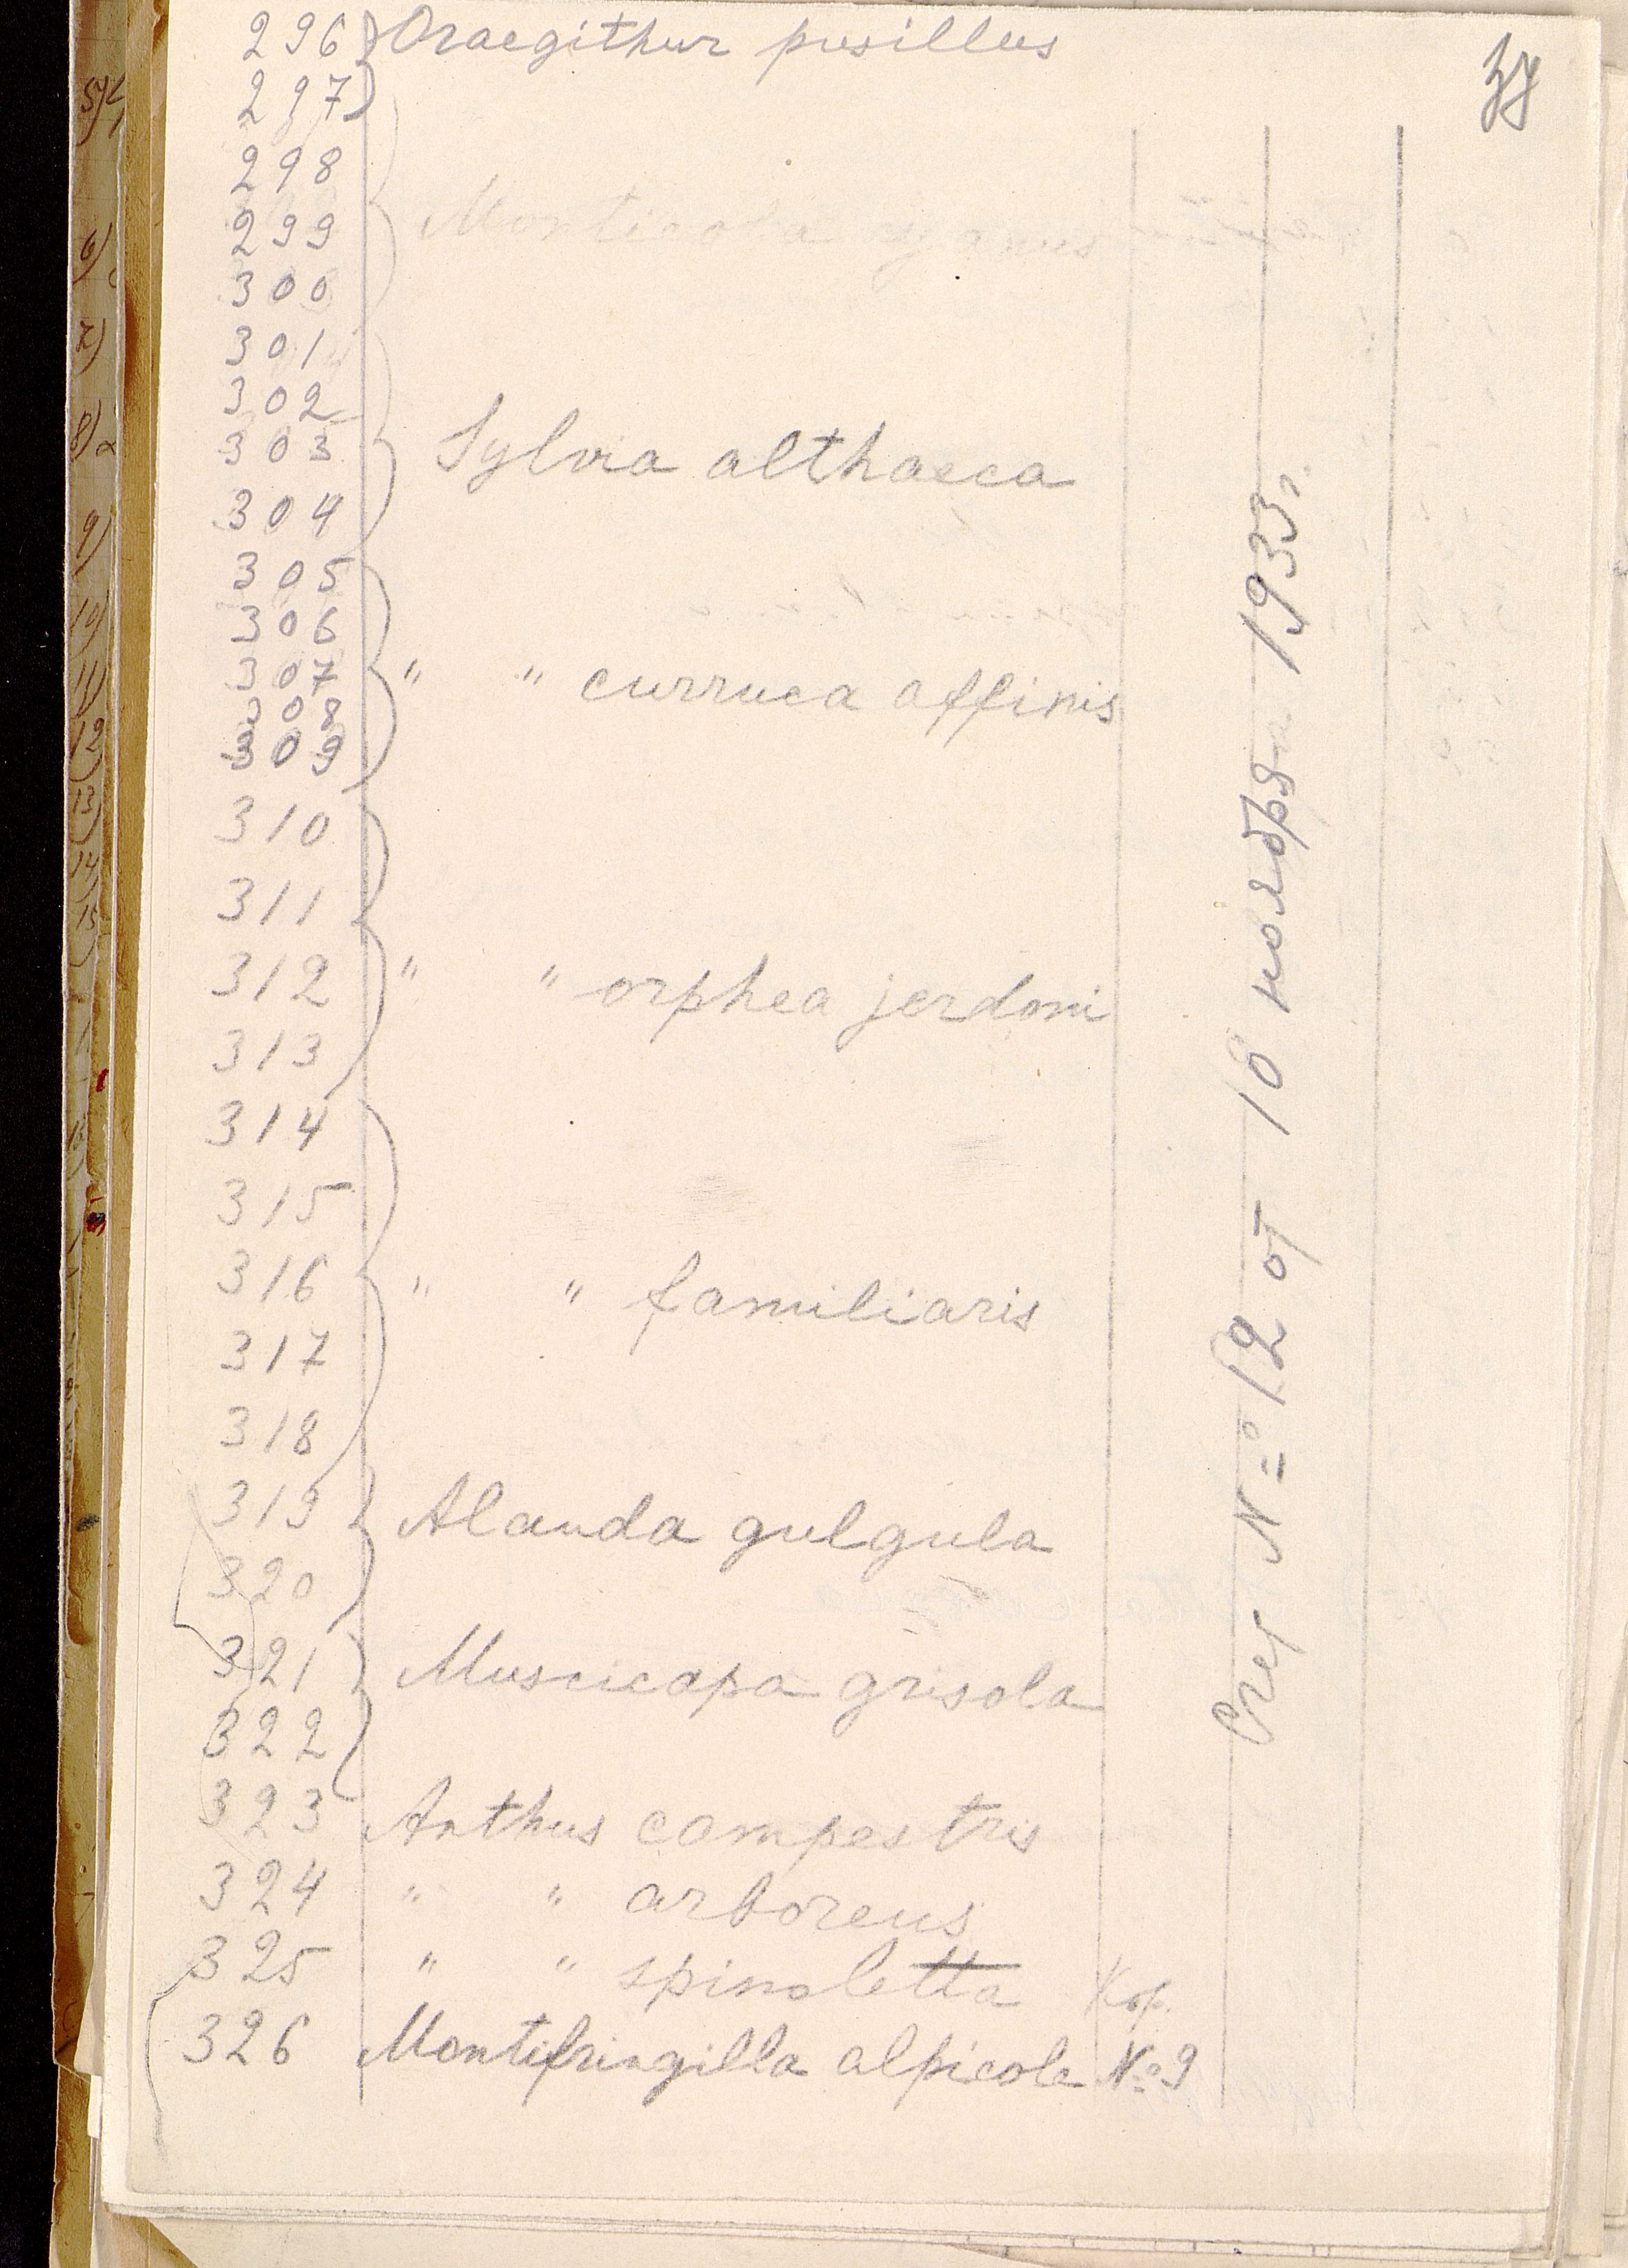 37
296 Oraegithur pusillus
297
298
299 Monticola cyanus
300
301
302
303 Sylvia althaeca
304
305
306
307 " " curruca affinis
308
309
310
311
312 " " orphea jerdoni
313
314
315
316 " " familiaris
317
318
319 Alauda gulgula
320
321 Muscicapa grisola
322
323 Anthus campestris
324 " " arboreus
325 " " spinoletta Кор.
326 Montifringilla alpicola № 9
Счет № 12 от 18 ноября 1933 г.